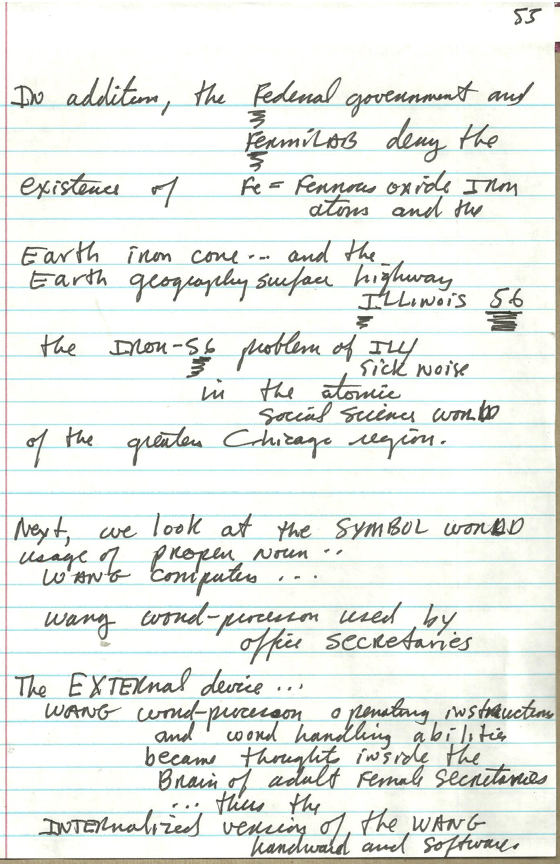 53
In addition, the Federal government and
FermiLAB deny the
existence of Fe = Ferrous oxide Iron
atoms and the
Earth iron core... and the
Earth geography surface highway
ILLINOIS 56
the Iron-56 problem of ILLY
sick noise
in the atomic
social science world
of the greater Chicago region.
Next, we look at the SYMBOL world
usage of proper noun..
WANG computers ...
wang word-processor used by
office secretaries
The EXTERNAL device ...
WANG word-processor operating instruction
and word handling abilities
became thoughts inside the
Brain of adult Female Secretaries
... thus the
INTERNALized version of the WANG
hardward and software